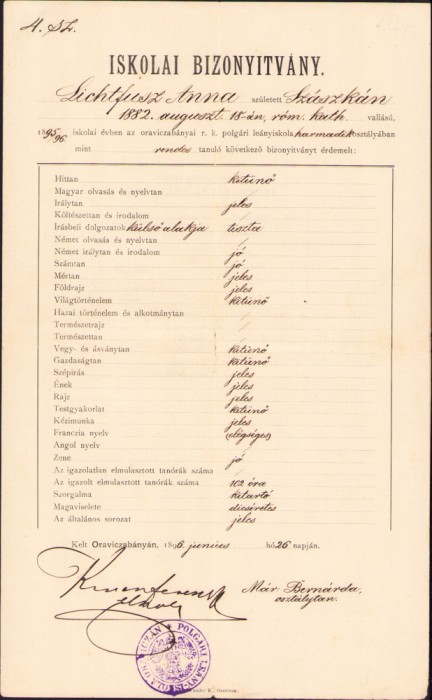 4. sz.
ISKOLAI BIZONYITVÁNY.
Lichtfusz Anna született Szászkán
1882. auguszt. 18-án, róm. kath. vallásu,
1895/96 iskolai évben az oraviczabányai r. k. polgári leányiskola harmadik osztályában
mint rendes tanuló következő bizonyitványt érdemelt:
Hittan kitünő
Magyar olvasás és nyelvtan
Irálytan jeles
Költészettan és irodalom
Irásbeli dolgozatok külső alakja tiszta
Német olvasás és nyelvtan
Német irálytan és irodalom jó
Számtan jó
Mértan jeles
Földrajz jeles
Világtörténelem kitünő
Hazai történelem és alkotmánytan
Természetrajz
Természettan
Vegy- és ásványtan kitünő
Gazdaságtan kitünő
Szépirás jeles
Ének jeles
Rajz jeles
Testgyakorlat kitünő
Kézimunka jeles
Franczia nyelv (elégséges)
Angol nyelv
Zene jó
Az igazolatlan elmulasztott tanórák száma
Az igazolt elmulasztott tanórák száma 102 óra
Szorgalma kitartó
Magaviselete dicséretes
Az általános sorozat jeles
Kelt Oraviczabányán. 1896 junius hó 26 napján.
Már Bernárda,
osztálytan.
POLGÁRI LEÁNYISKOLA